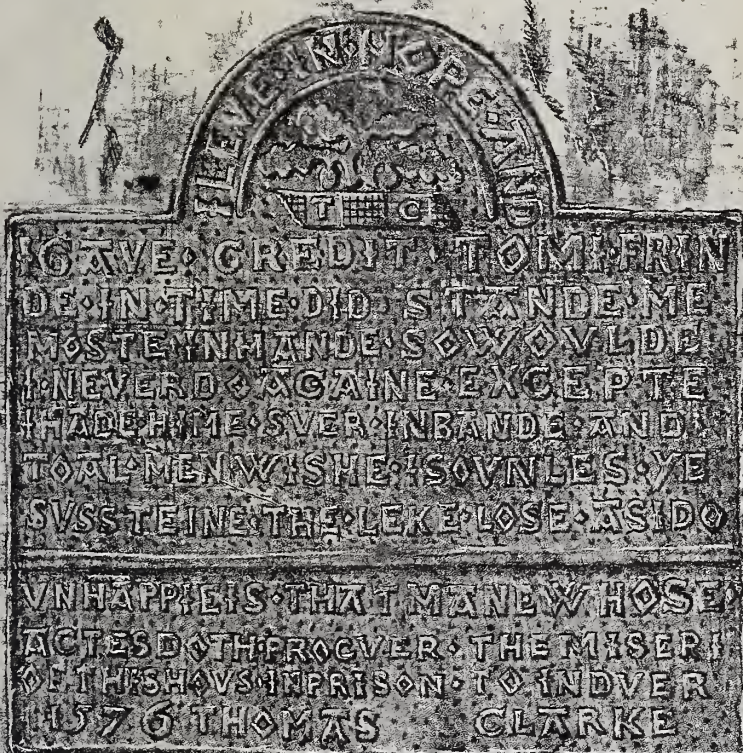 I·LEVE·IN·HOPE·AND
T C
I·GAVE·CREDIT·TO MI·FRIN
DE·IN·TYME·DID STANDE·ME
MOSTE IN HANDE·SO WOVLDE
I·NEVER DO·AGAINE·EXCEPTE
I HADE HIME·SVER·IN BANDE·AND
TO AL·MEN WISHE·I SO VNLES·YE
SVSSTEINE·THE·LEKE·LOSE·AS I DO
VNHAPPIE IS·THAT MANE WHOSE
ACTES DOTH PROCVER·THE MISERI
OF THIS HOVS·IN PRISON·TO INDVER
1576 THOMAS CLARKE